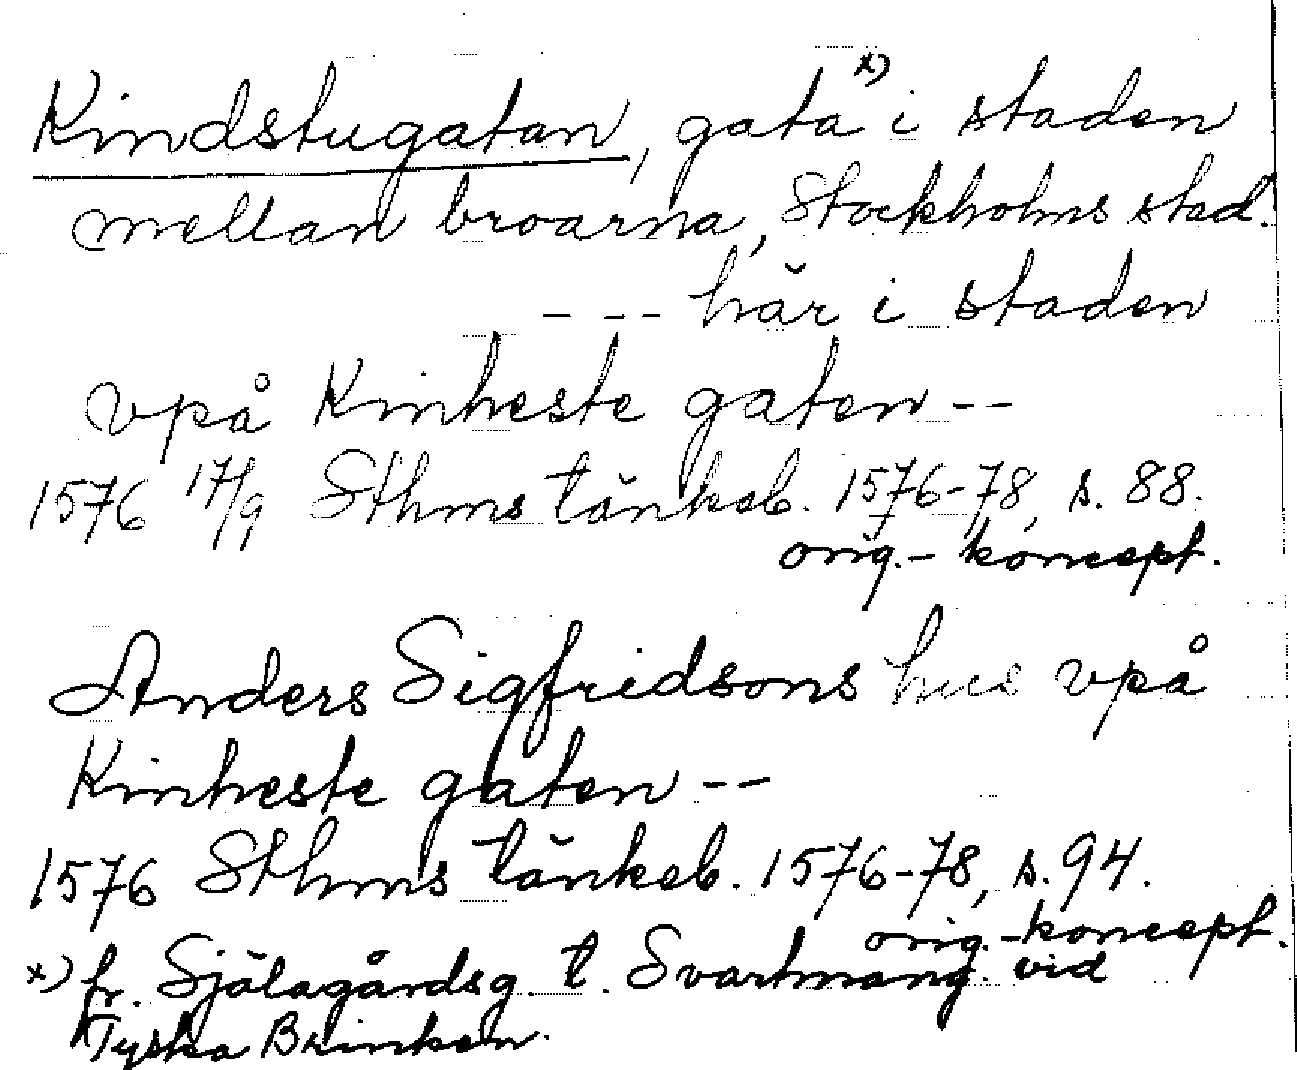 Kindstugatan, gata x) i staden
mellan broarna, Stockholms stad.
- - - här i staden
vpå Kinheste gaten --
1576 17/9 Sthms tänkeb. 1576-78, s. 88.
orig.- koncept.
Anders Sigfridsons hus vpå
Kinheste gaten --
1576 Sthms tänkeb. 1576-78, s. 94.
orig.-koncept.
x) fr. Själagårdsg. t. Svartmang. vid
Tyska Brinken.